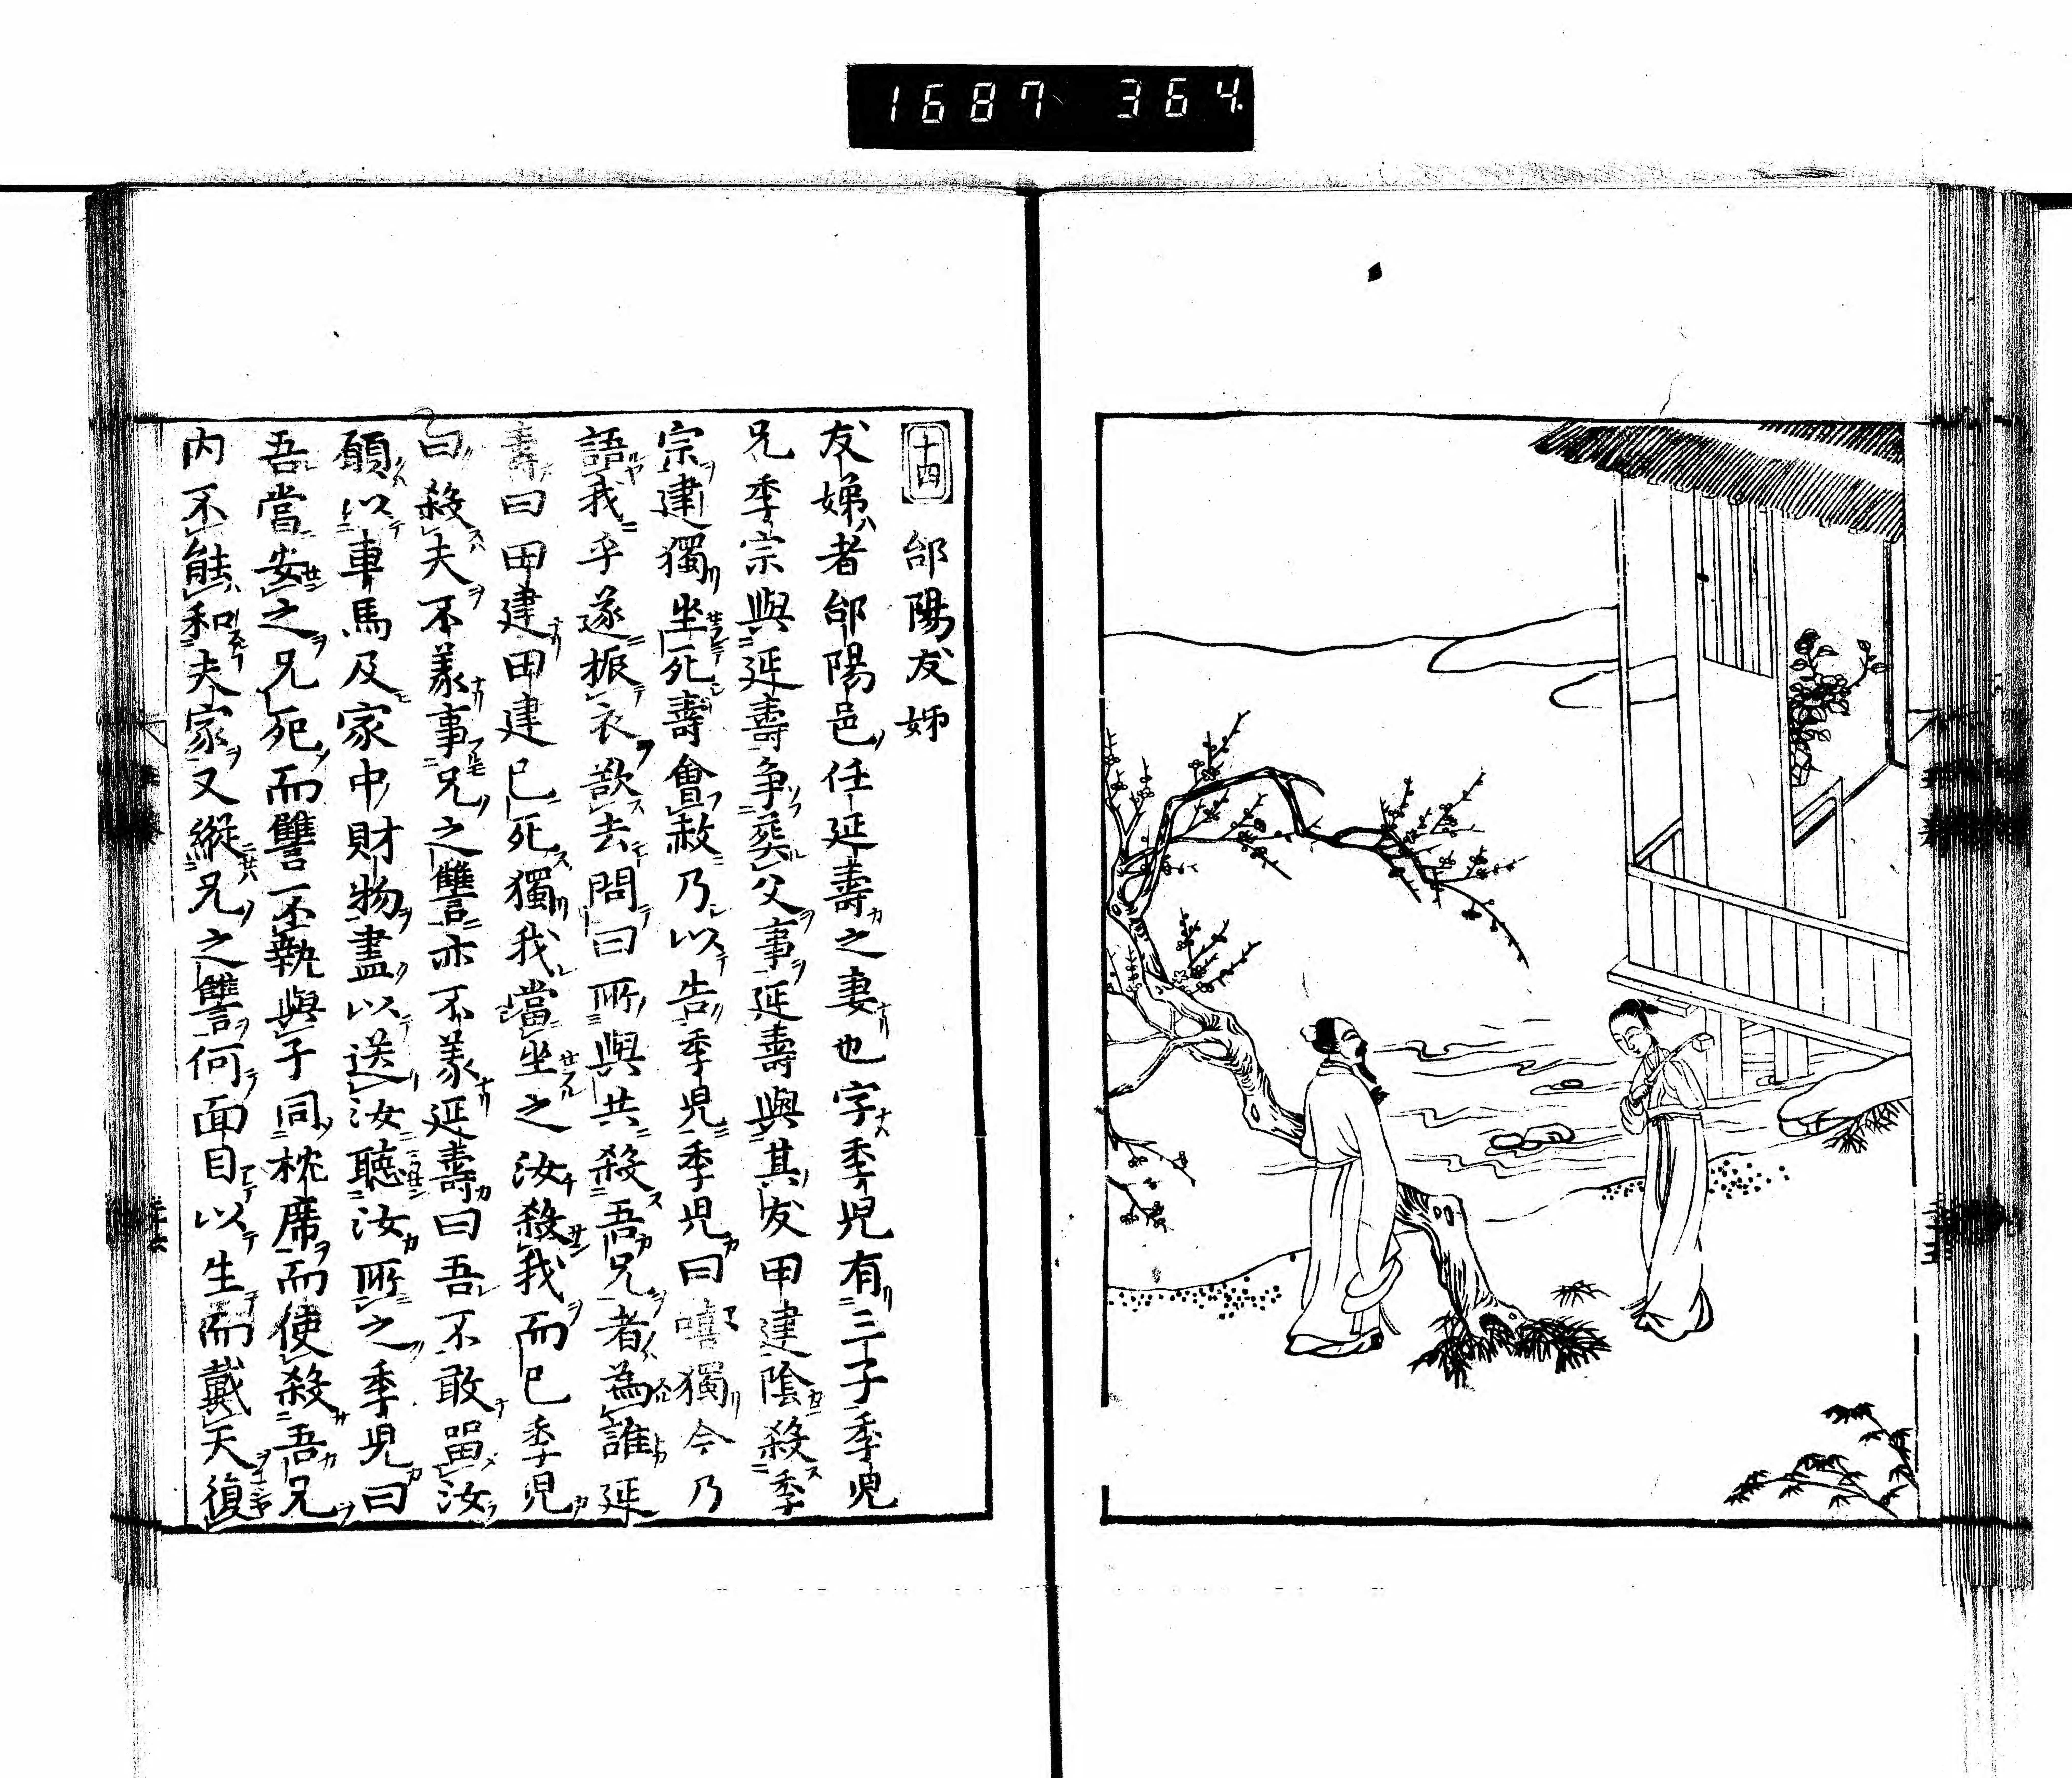 1687 364.
十四 郃陽友娣
友娣者郃陽邑任延壽之妻也字季児有三子季児
兄季宗與延壽争葬父事延壽與其友田建陰殺季
宗建獨坐死壽會赦乃以告季児季児曰嘻獨今乃
語我乎遂振衣欲去問曰所與共殺吾兄者為誰延
壽曰田建田建已死獨我當坐之汝殺我而已季児
曰殺夫不義事兄之讐亦不義延壽曰吾不敢畱汝
願以車馬及家中財物盡以送汝聴汝所之季児曰
吾當安之兄死而讐不報與子同枕席而使殺吾兄
内不能和夫家又縦兄之讐何面目以生而戴天復